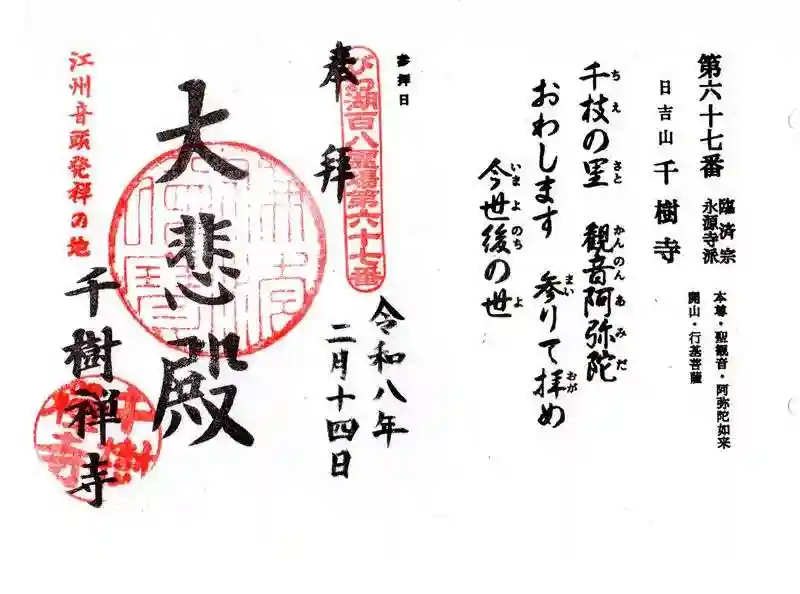 第六十七番
臨済宗
永源寺派
日吉山 千樹寺
本尊・聖観音・阿弥陀如来
開山・行基菩薩
千枝の里 観音阿弥陀
ちえ さと かんのんあみだ
おわします 参りて拝め
まい おが
今世後の世
いまよのち よ
参拝日
奉拝
びわ湖百八霊場第六十七番
令和八年
二月十四日
大悲殿
千樹禅寺
江州音頭発祥の地